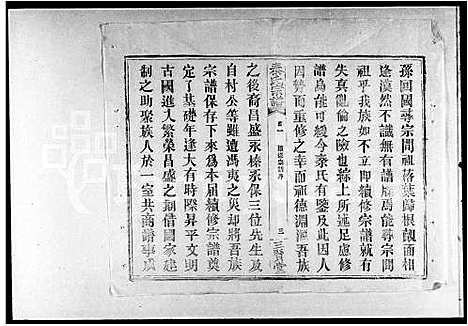 孫回國尋宗問祖落葉歸根覿面相
逢漠然不識無有譜牒焉能尋宗問
祖乎我族如不立即續修宗譜就有
失真亂倫之險也綜上所述足虞修
譜烏能可緩今秦氏有鑒及此因人
因勢而重修之幸而祖德淵源吾族
秦氏宗譜
卷一
三
三賢堂
之後裔昌盛永榛永保三位先生及
自村公等雖遭馮夷之災却將吾族
宗譜保存下來爲本屆續修宗譜奠
定了基礎年逢大有時際昇平文明
古國進入繁榮昌盛之期借國家建
制之助聚族人於一室共商譜事廣